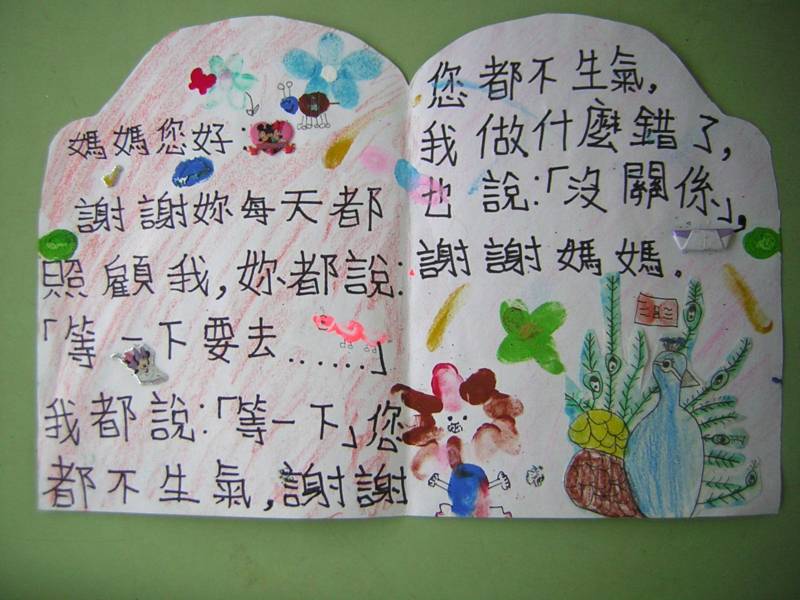 媽媽您好:
謝謝妳每天都
照顧我,妳都說:
「等一下要去……」
我都說:「等一下」您
都不生氣,謝謝
您都不生氣,
我做什麼錯了,
也說:「沒關係」,
謝謝媽媽。